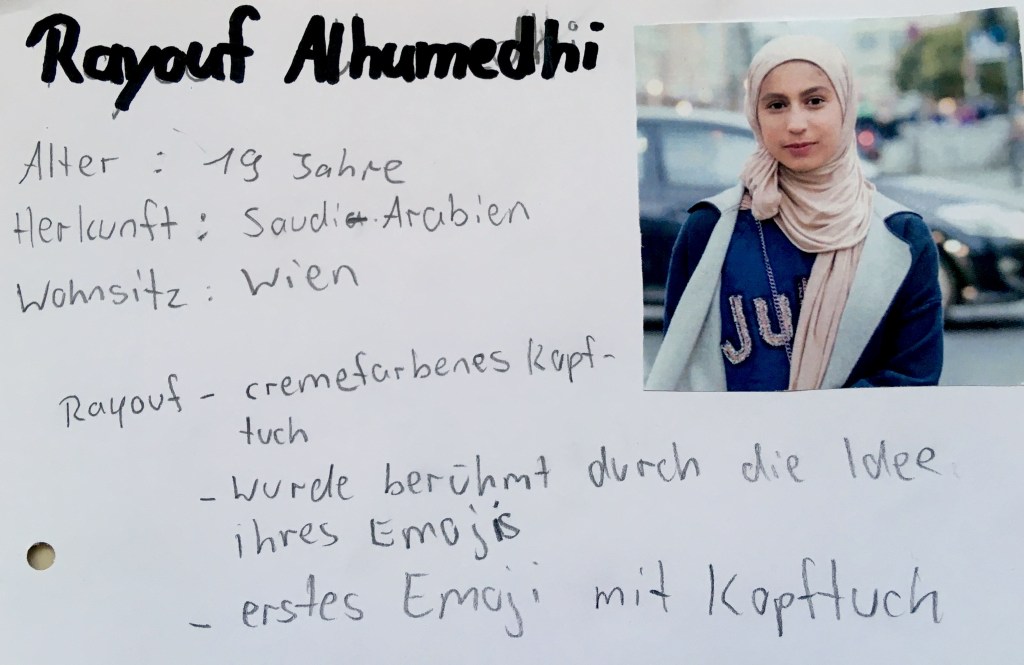 Rayouf Alhumedhi
Alter : 19 Jahre
Herkunft : Saudi-Arabien
Wohnsitz : Wien
JU
Rayouf - cremefarbenes Kopf-
tuch
- wurde berühmt durch die Idee
ihres Emojis
- erstes Emoji mit Kopftuch